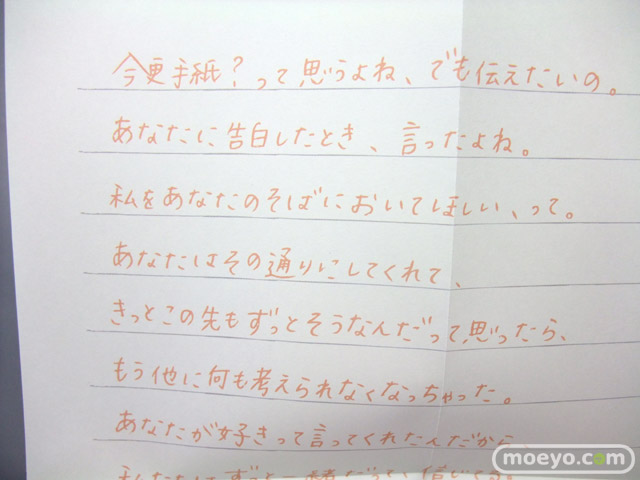 今更手紙？って思うよね、でも伝えたいの。
あなたに告白したとき、言ったよね。
私をあなたのそばにおいてほしい、って。
あなたはその通りにしてくれて、
きっとこの先もずっとそうなんだって思ったら、
もう他に何も考えられなくなっちゃった。
あなたが好きって言ってくれたんだから
moeyo.com